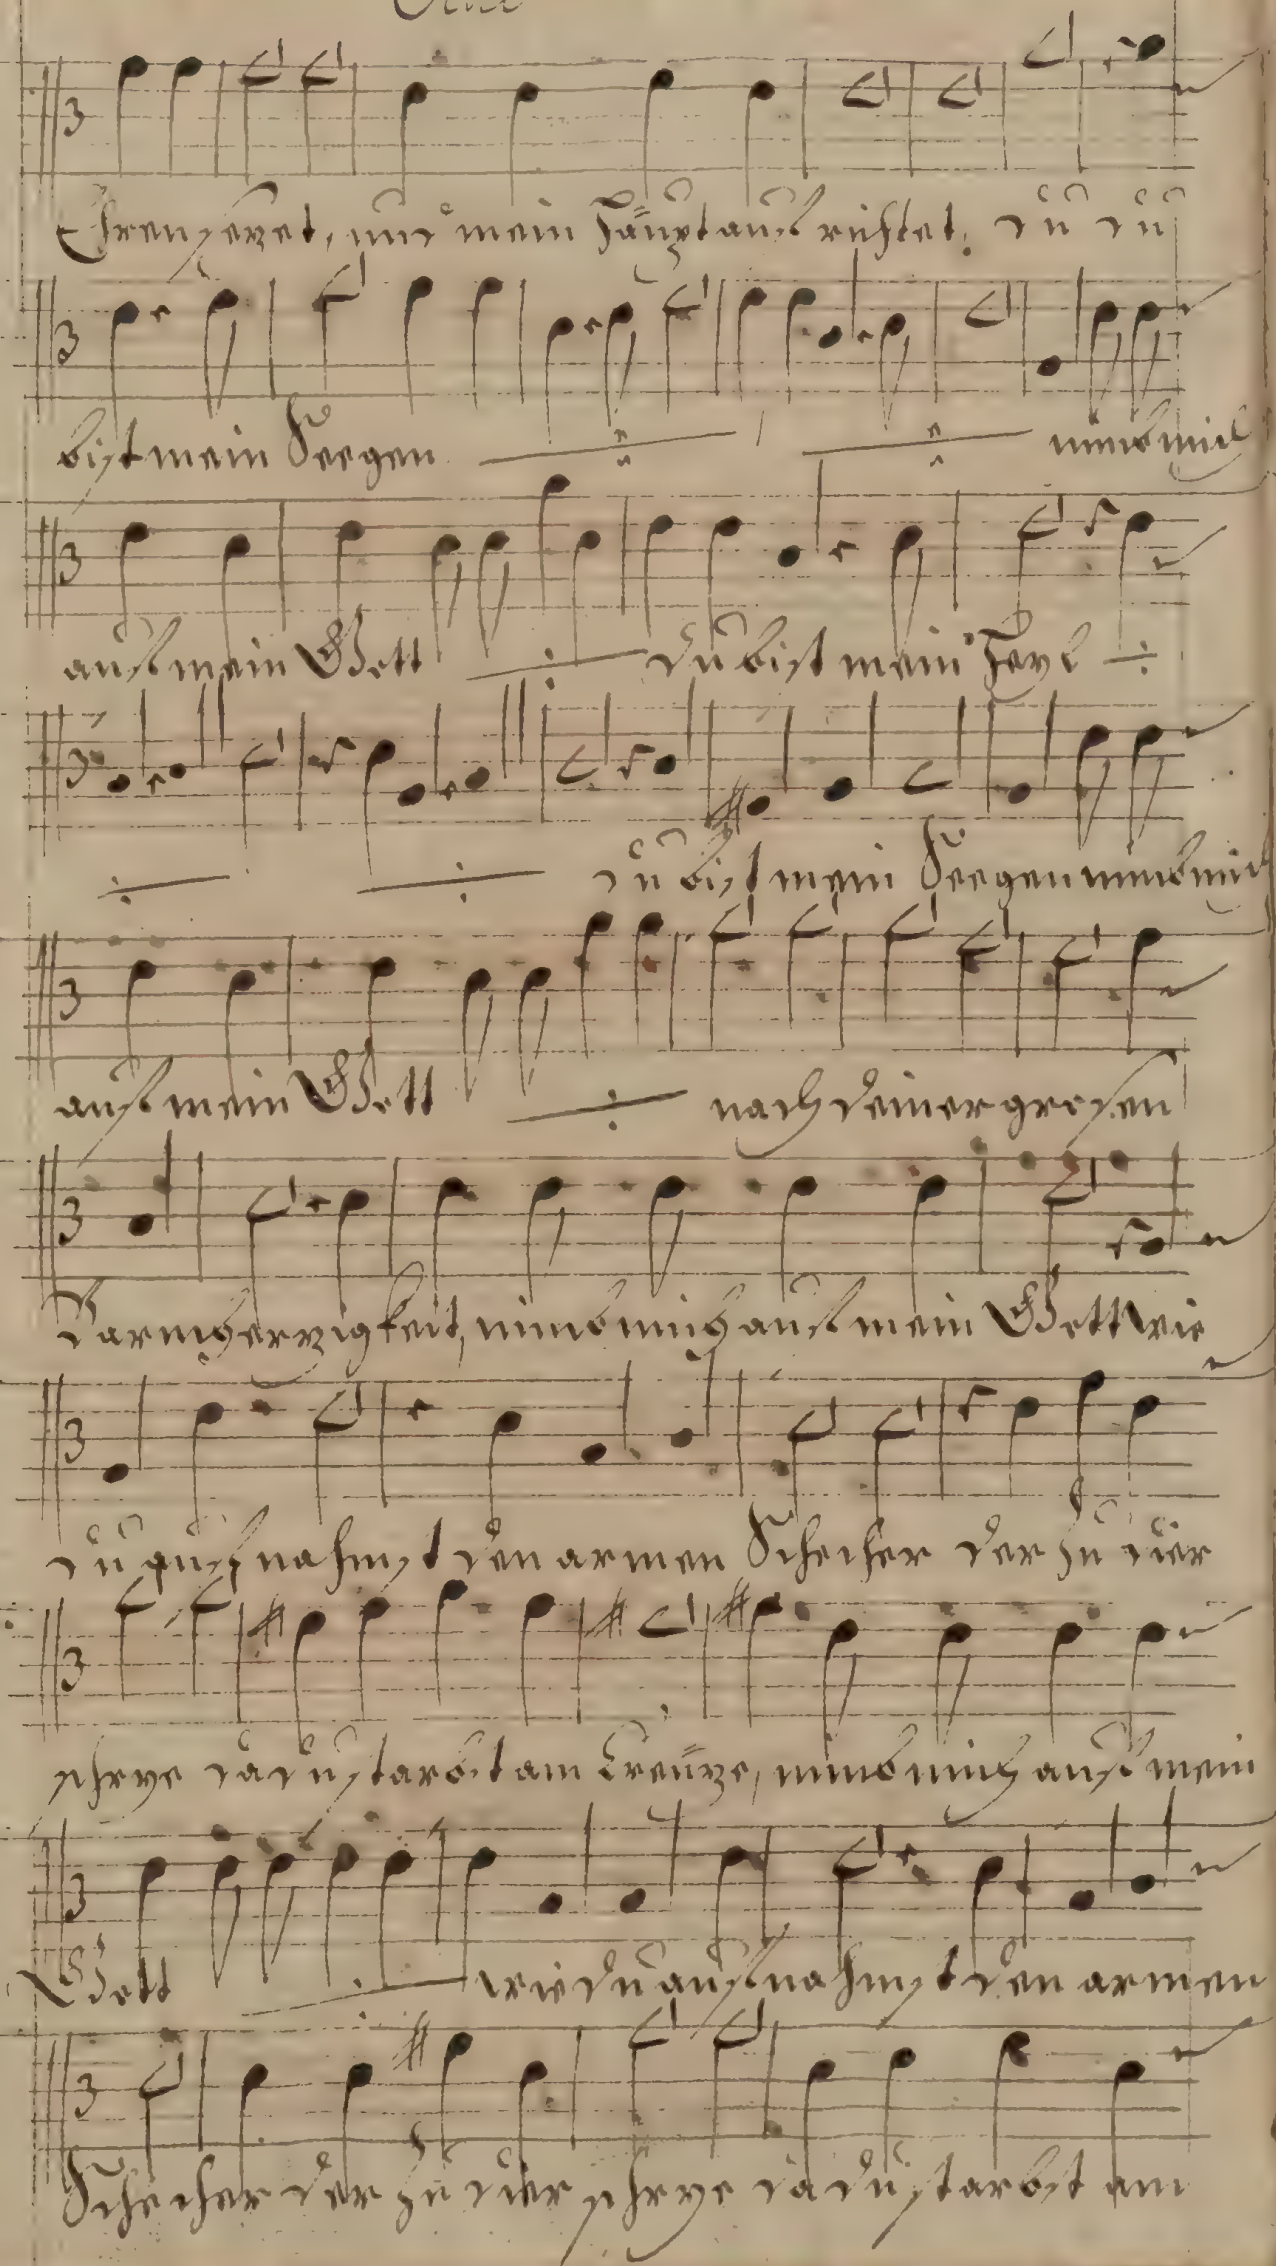 Ehren setzet, und mein Häupt auff richtet. du du
bist mein Seegen nimb mich
auff mein Gott du bist mein Heyl
du bist mein Seegen nimb mich
auff mein Gott nach deiner grosen
Barmhertzigkeit, nimb mich auff mein Gott wie
du auff nahmst den armen Schecher der zu dier
schrye da du starbst am Creutze, nimb mich auff mein
Gott wie du auff nahmst den armen
Schecher der zu dier schrye da du starbst am